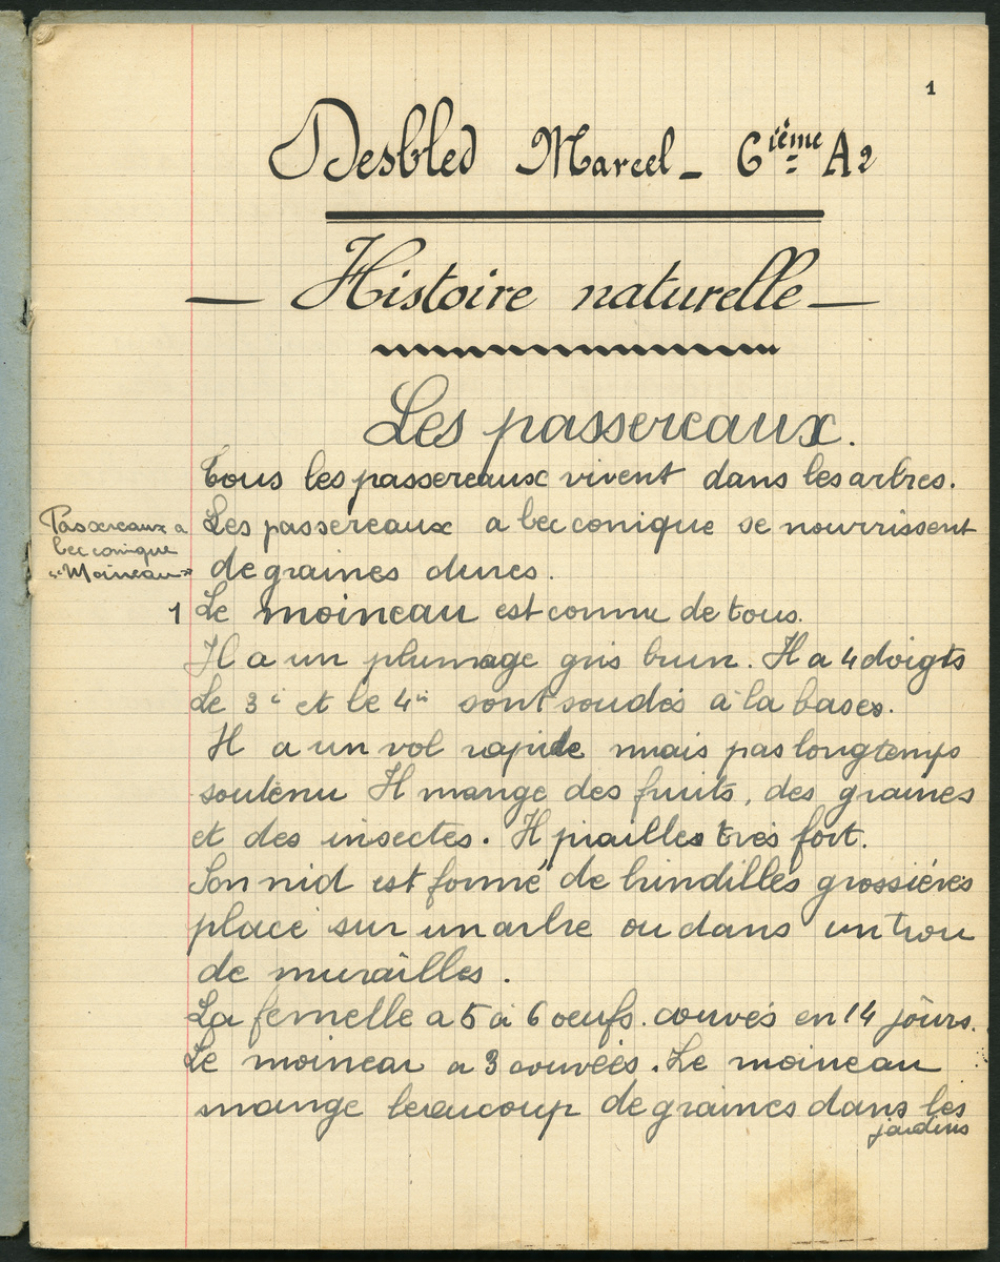 1
Desbled Marcel - 6ième A2
- Histoire naturelle -
Les passereaux.
Tous les passereaux vivent dans les arbres.
Passereaux a
bec conique
"Moineau"
Les passereaux a bec conique se nourrissent
de graines dures.
1 Le moineau est connu de tous.
Il a un plumage gris brun. Il a 4 doigts
Le 3è et le 4è sont soudés à la bases.
Il a un vol rapide mais pas longtemps
soutenu Il mange des fruits, des graines
et des insectes. Il piailles très fort.
Son nid est formé de brindilles grossières
placé sur un arbre ou dans un trou
de murailles.
La femelle a 5 à 6 oeufs. couvés en 14 jours.
Le moineau a 3 couvées. Le moineau
mange beaucoup de graines dans les
jardins